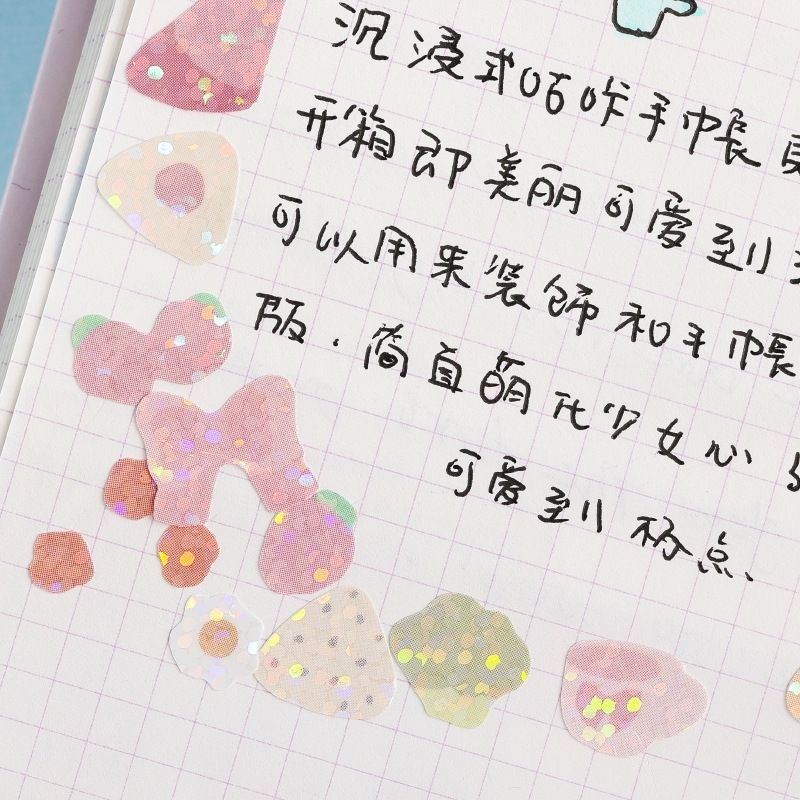 沉浸式咕咔手帐
开箱 即美丽可爱到
可以用来装饰和手帐
版.简直萌化少女心
可爱到极点.